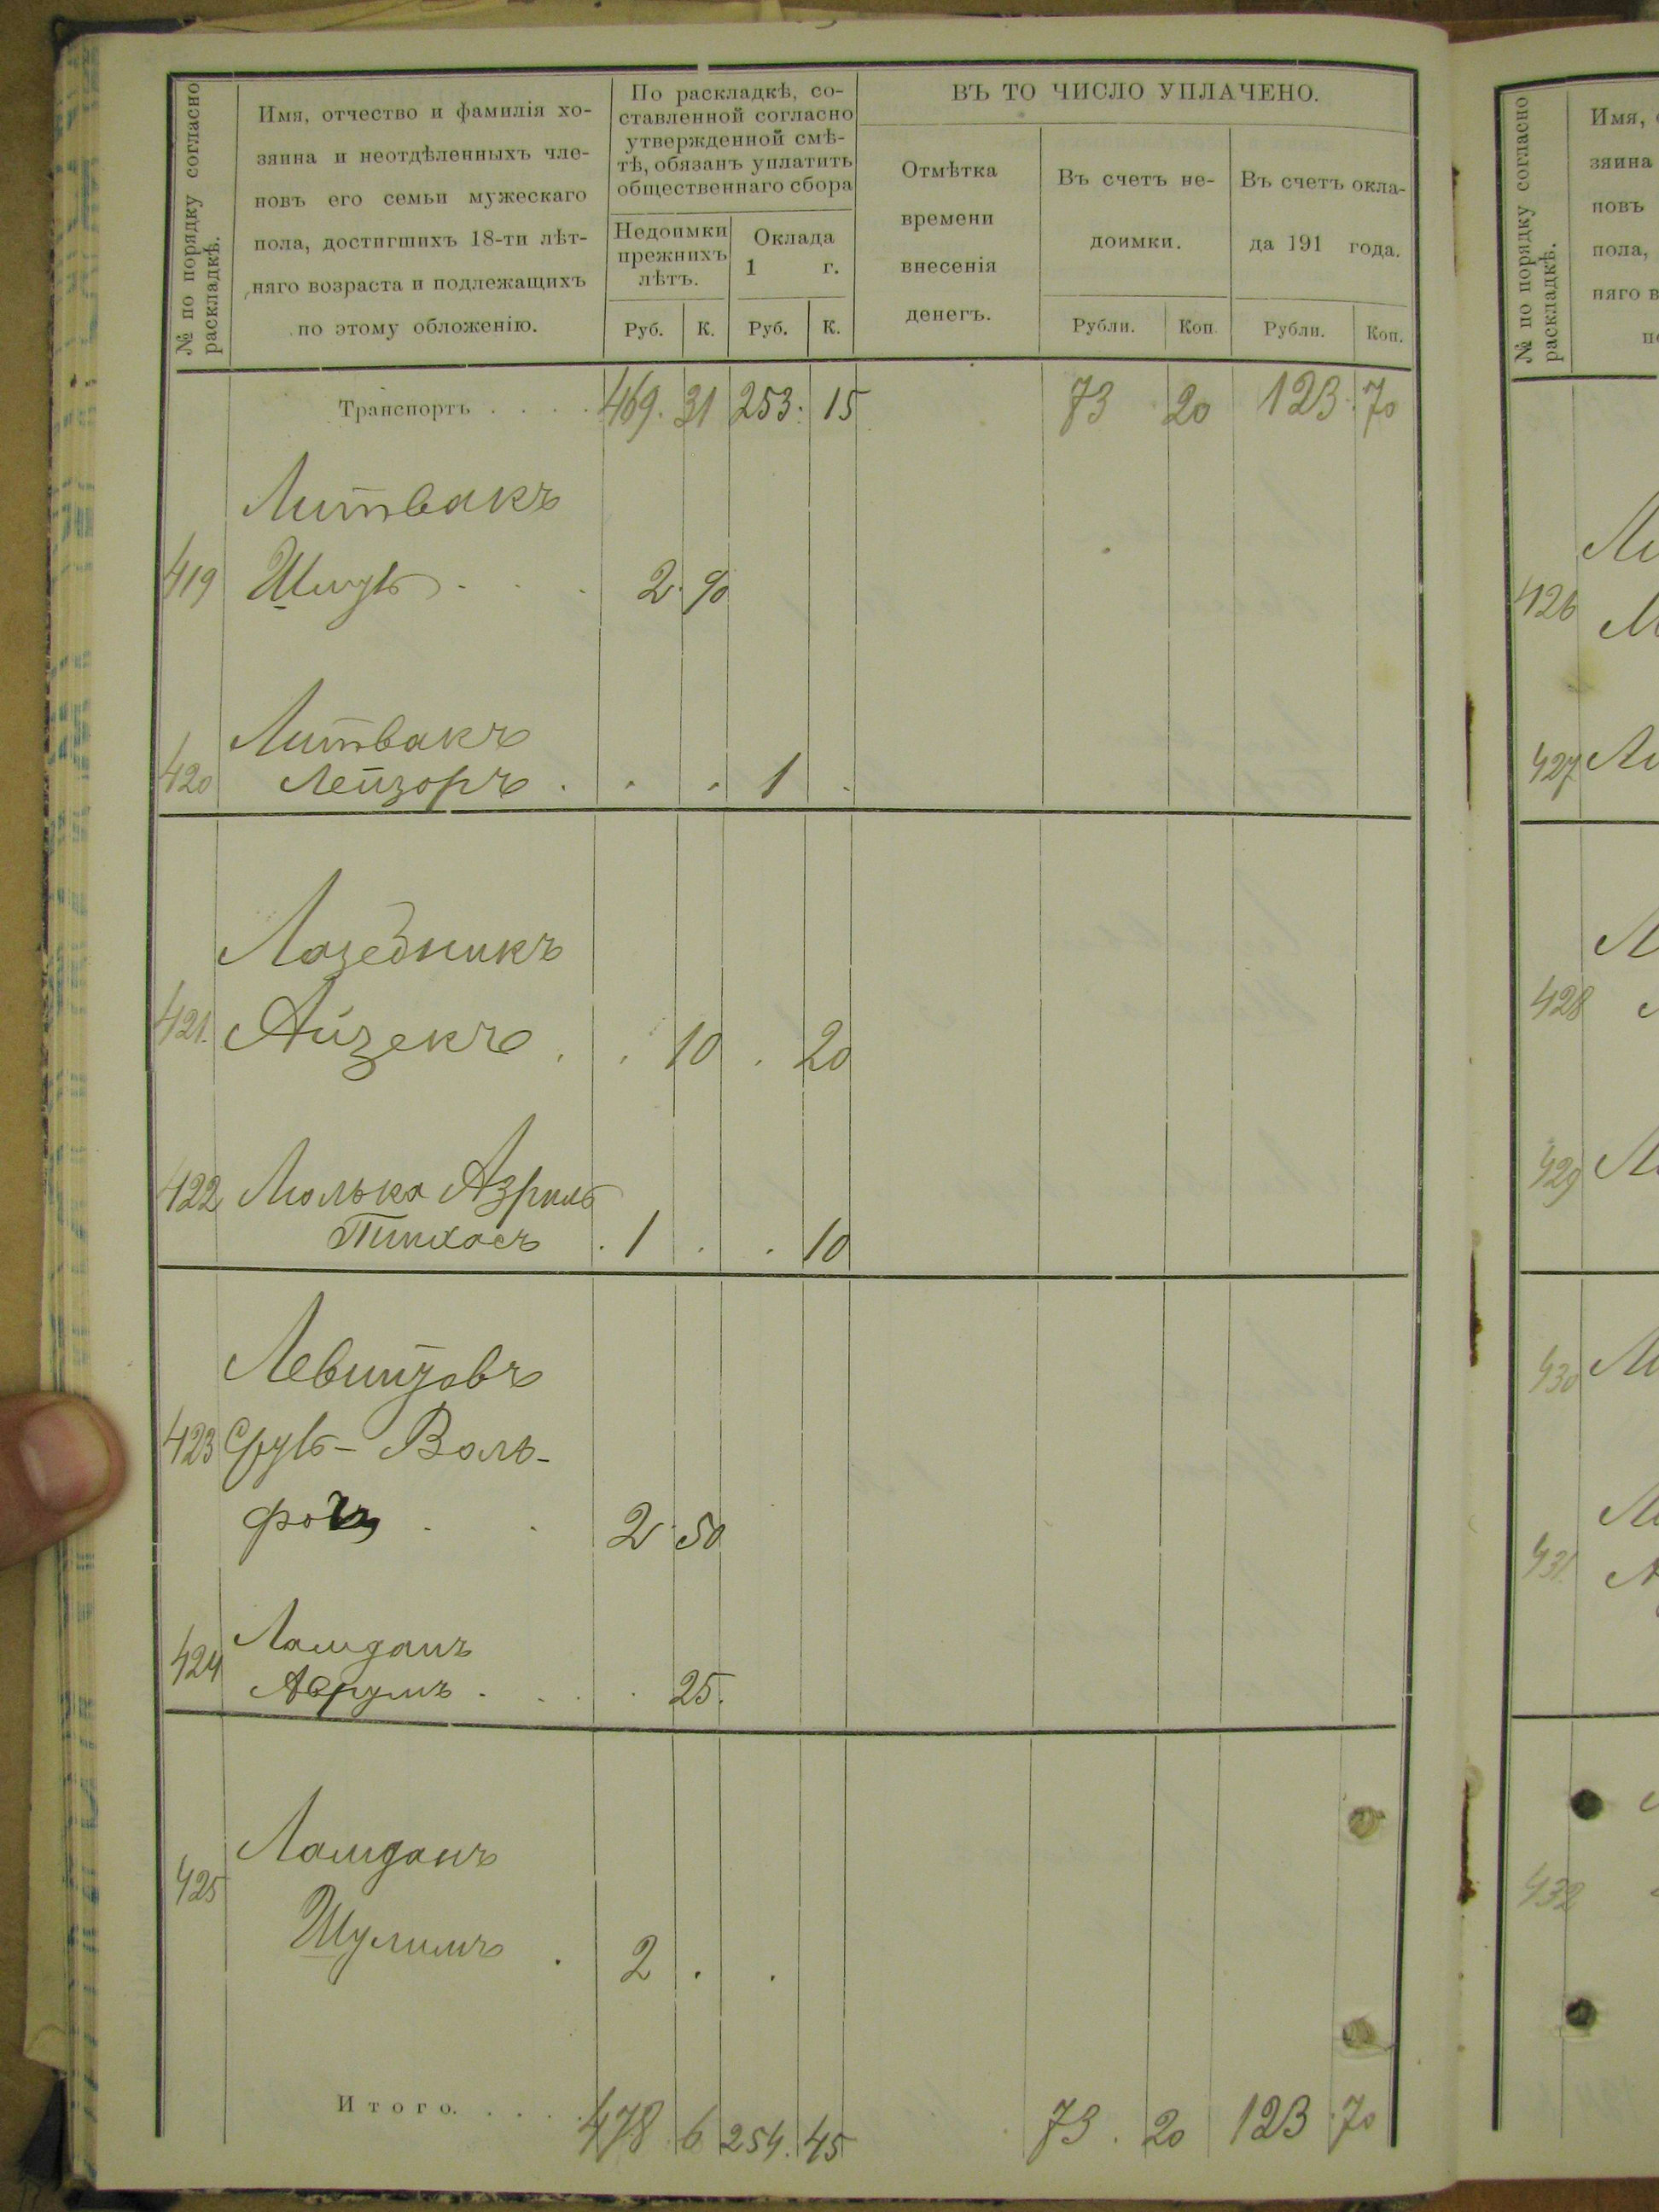 № по порядку согласно
раскладкѣ.
Имя, отчество и фамилія хо-
зяина и неотдѣленныхъ чле-
новъ его семьи мужескаго
пола, достигшихъ 18-ти лѣт-
няго возраста и подлежащихъ
по этому обложенію.
По раскладкѣ, со-
ставленной согласно
утвержденной смѣ-
тѣ, обязанъ уплатить
общественнаго сбора
Недоимки
прежнихъ
лѣтъ.
Оклада
1 г.
Руб. К. Руб. К.
ВЪ ТО ЧИСЛО УПЛАЧЕНО.
Отмѣтка
времени
внесенія
денегъ.
Въ счетъ не-
доимки.
Въ счетъ окла-
да 191 года.
Рубли. Коп. Рубли. Коп.
Транспортъ . . . . 469. 31 253. 15 73 20 123 70
Литвакъ
419 Шмуль . . . 2 90
Литвакъ
420 Лейзоръ . . . 1 .
Лазебникъ
421. Айзекъ . . 10 . 20
422 Люлька Азриль
Пинхасъ . 1 . . 10
423 Сруль-Воль-
2 50
Ламданъ
424 Аврумъ . . . . 25.
Ламданъ
425
Шулимъ . 2 . .
Итого. . . . 478 6 254. 45 73. 20 123 70
№ по порядку согласно
раскладкѣ.
Имя,
зяина
новъ
пола,
няго в
426
427
428
429
430
431
432